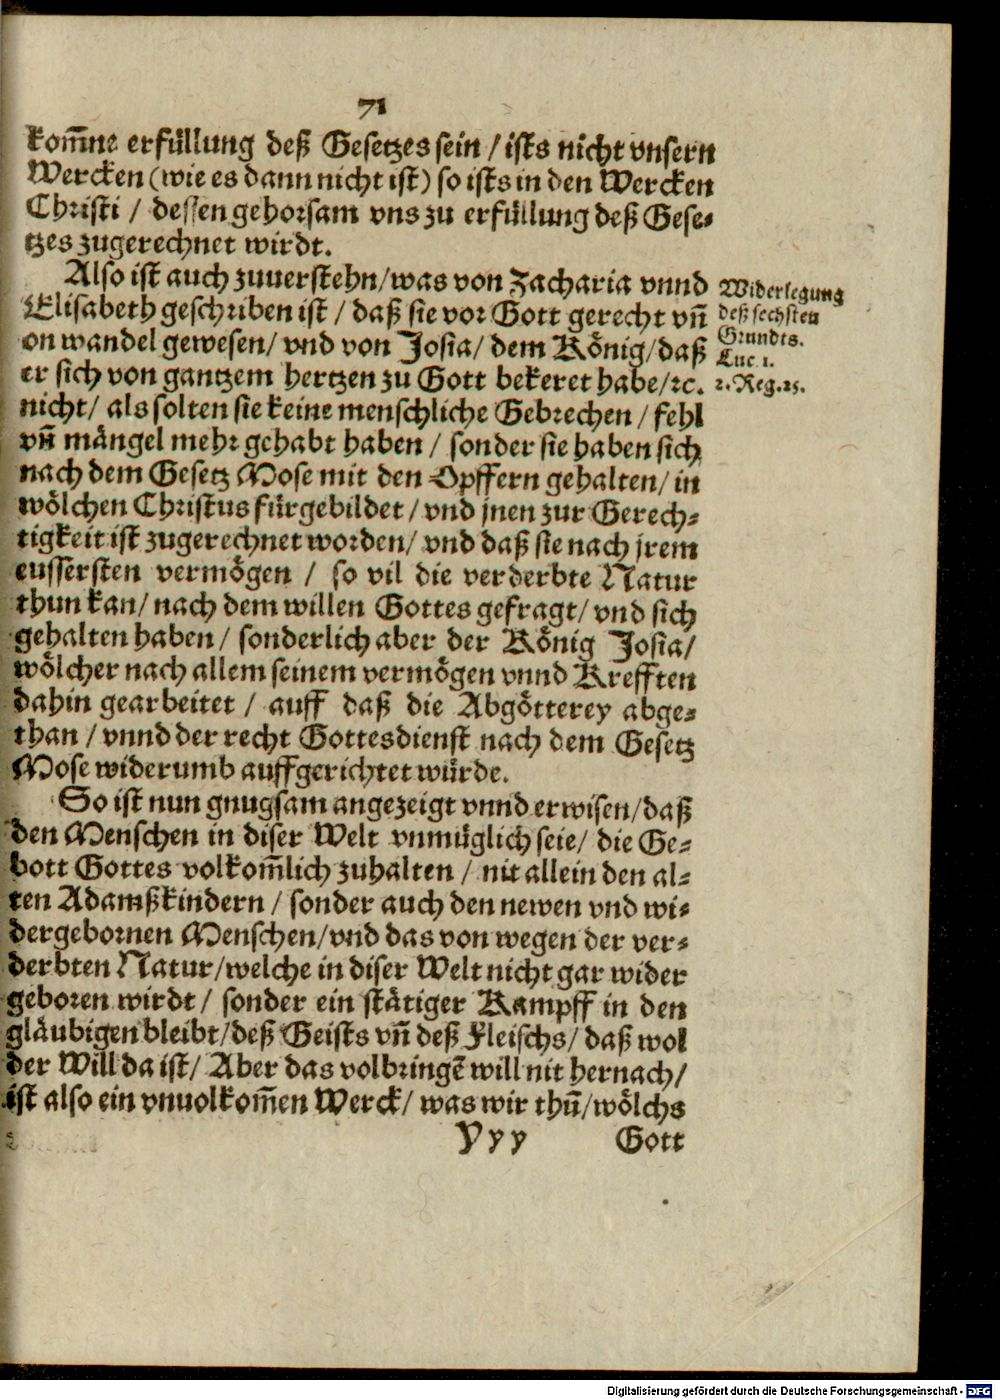 71
kom̃ne erfüllung deß Gesetzes sein / ists nicht vnsern
Wercken (wie es dann nicht ist) so ists in den Wercken
Christi / dessen gehorsam vns zu erfüllung deß Gese-
tzes zugerechnet wirdt.
Also ist auch zuuerstehn/was von Zacharia vnnd
Elisabeth geschriben ist / daß sie vor Gott gerecht vñ
on wandel gewesen/ vnd von Josia/ dem König/daß
er sich von gantzem hertzen zu Gott bekeret habe/ꝛc.
nicht/ als solten sie keine menschliche Gebrechen / fehl
vñ mängel mehr gehabt haben / sonder sie haben sich
nach dem Gesetz Mose mit den Opffern gehalten/ in
wölchen Christus fürgebildet / vnd jnen zur Gerech-
tigkeit ist zugerechnet worden/ vnd daß sie nach jrem
eussersten vermögen / so vil die verderbte Natur
thun kan/ nach dem willen Gottes gefragt/ vnd sich
gehalten haben / sonderlich aber der König Josia/
wölcher nach allem seinem vermögen vnnd Krefften
dahin gearbeitet / auff daß die Abgötterey abge-
than / vnnd der recht Gottesdienst nach dem Gesetz
Mose widerumb auffgerichtet würde.
So ist nun gnugsam angezeigt vnnd erwisen/daß
den Menschen in diser Welt vnmüglich seie/ die Ge-
bott Gottes volkom̃lich zuhalten / nit allein den al-
ten Adamßkindern / sonder auch den newen vnd wi-
dergebornen Menschen/vnd das von wegen der ver-
derbten Natur/welche in diser Welt nicht gar wider
geboren wirdt / sonder ein stätiger Kampff in den
gläubigen bleibt/deß Geists vñ deß Fleischs/ daß wol
der Will da ist/ Aber das volbringẽ will nit hernach/
ist also ein vnuolkom̃en Werck/ was wir thũ/wölchs
Yyy Gott
Widerlegung
deß sechsten
Grundts.
Luc 1.
2. Reg. 23.
Digitalisierung gefördert durch die Deutsche Forschungsgemeinschaft - DFG